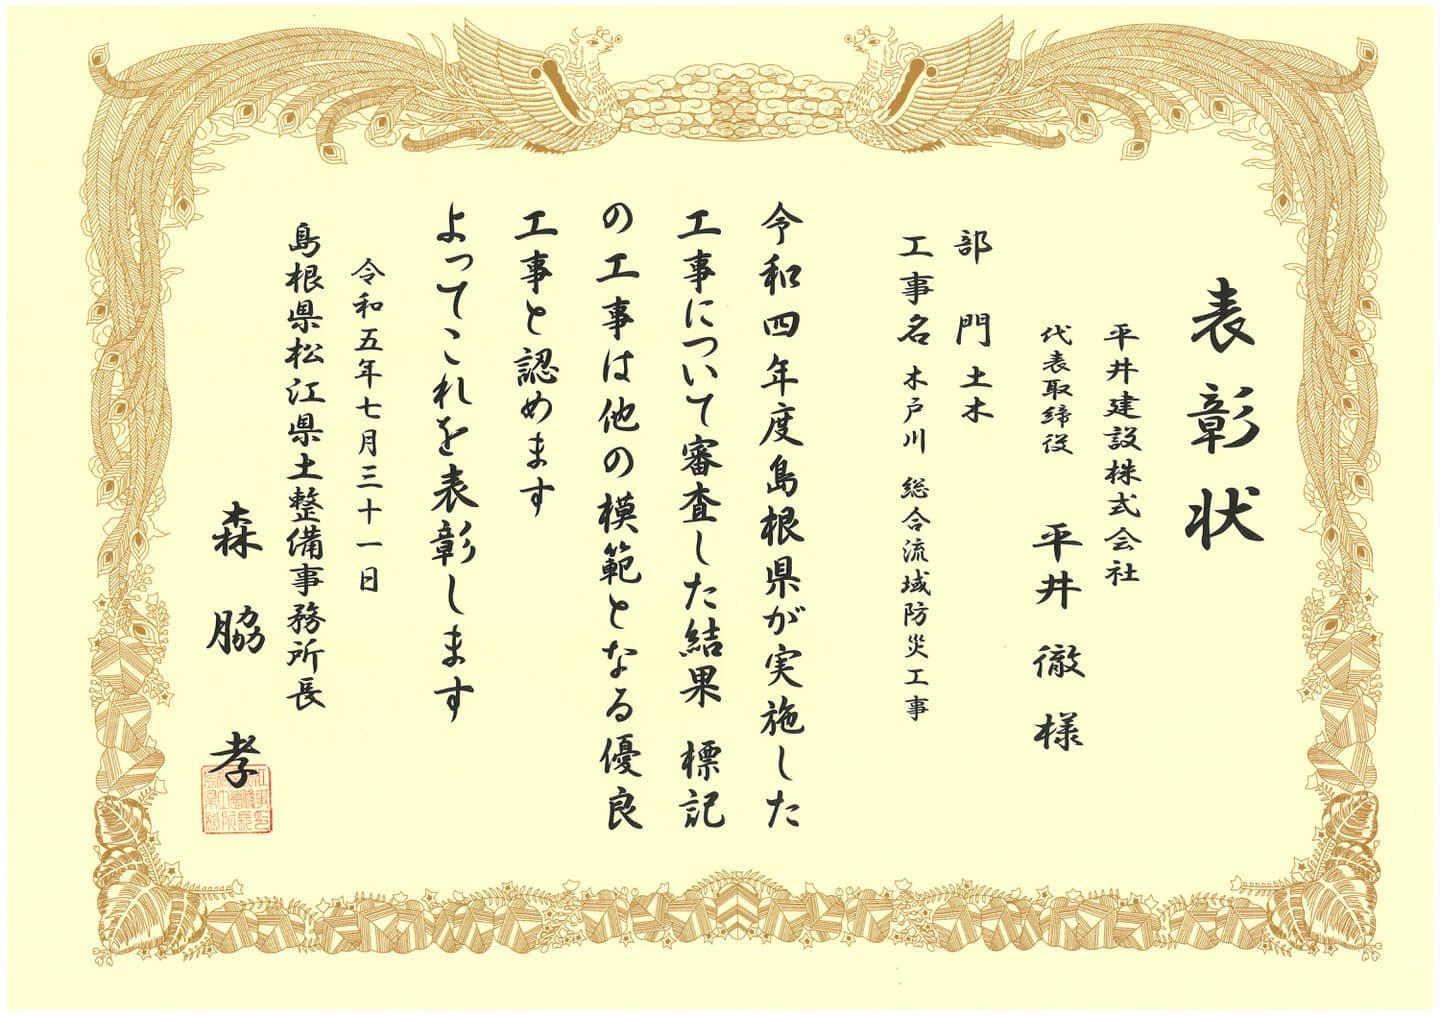 表彰状
平井建設株式会社
代表取締役 平井 徹 様
部門 土木
工事名 木戸川 総合流域防災工事
令和四年度島根県が実施した
工事について審査した結果 標記
の工事は他の模範となる優良
工事と認めます
よってこれを表彰します
令和五年七月三十一日
島根県松江県土整備事務所長
森脇 孝